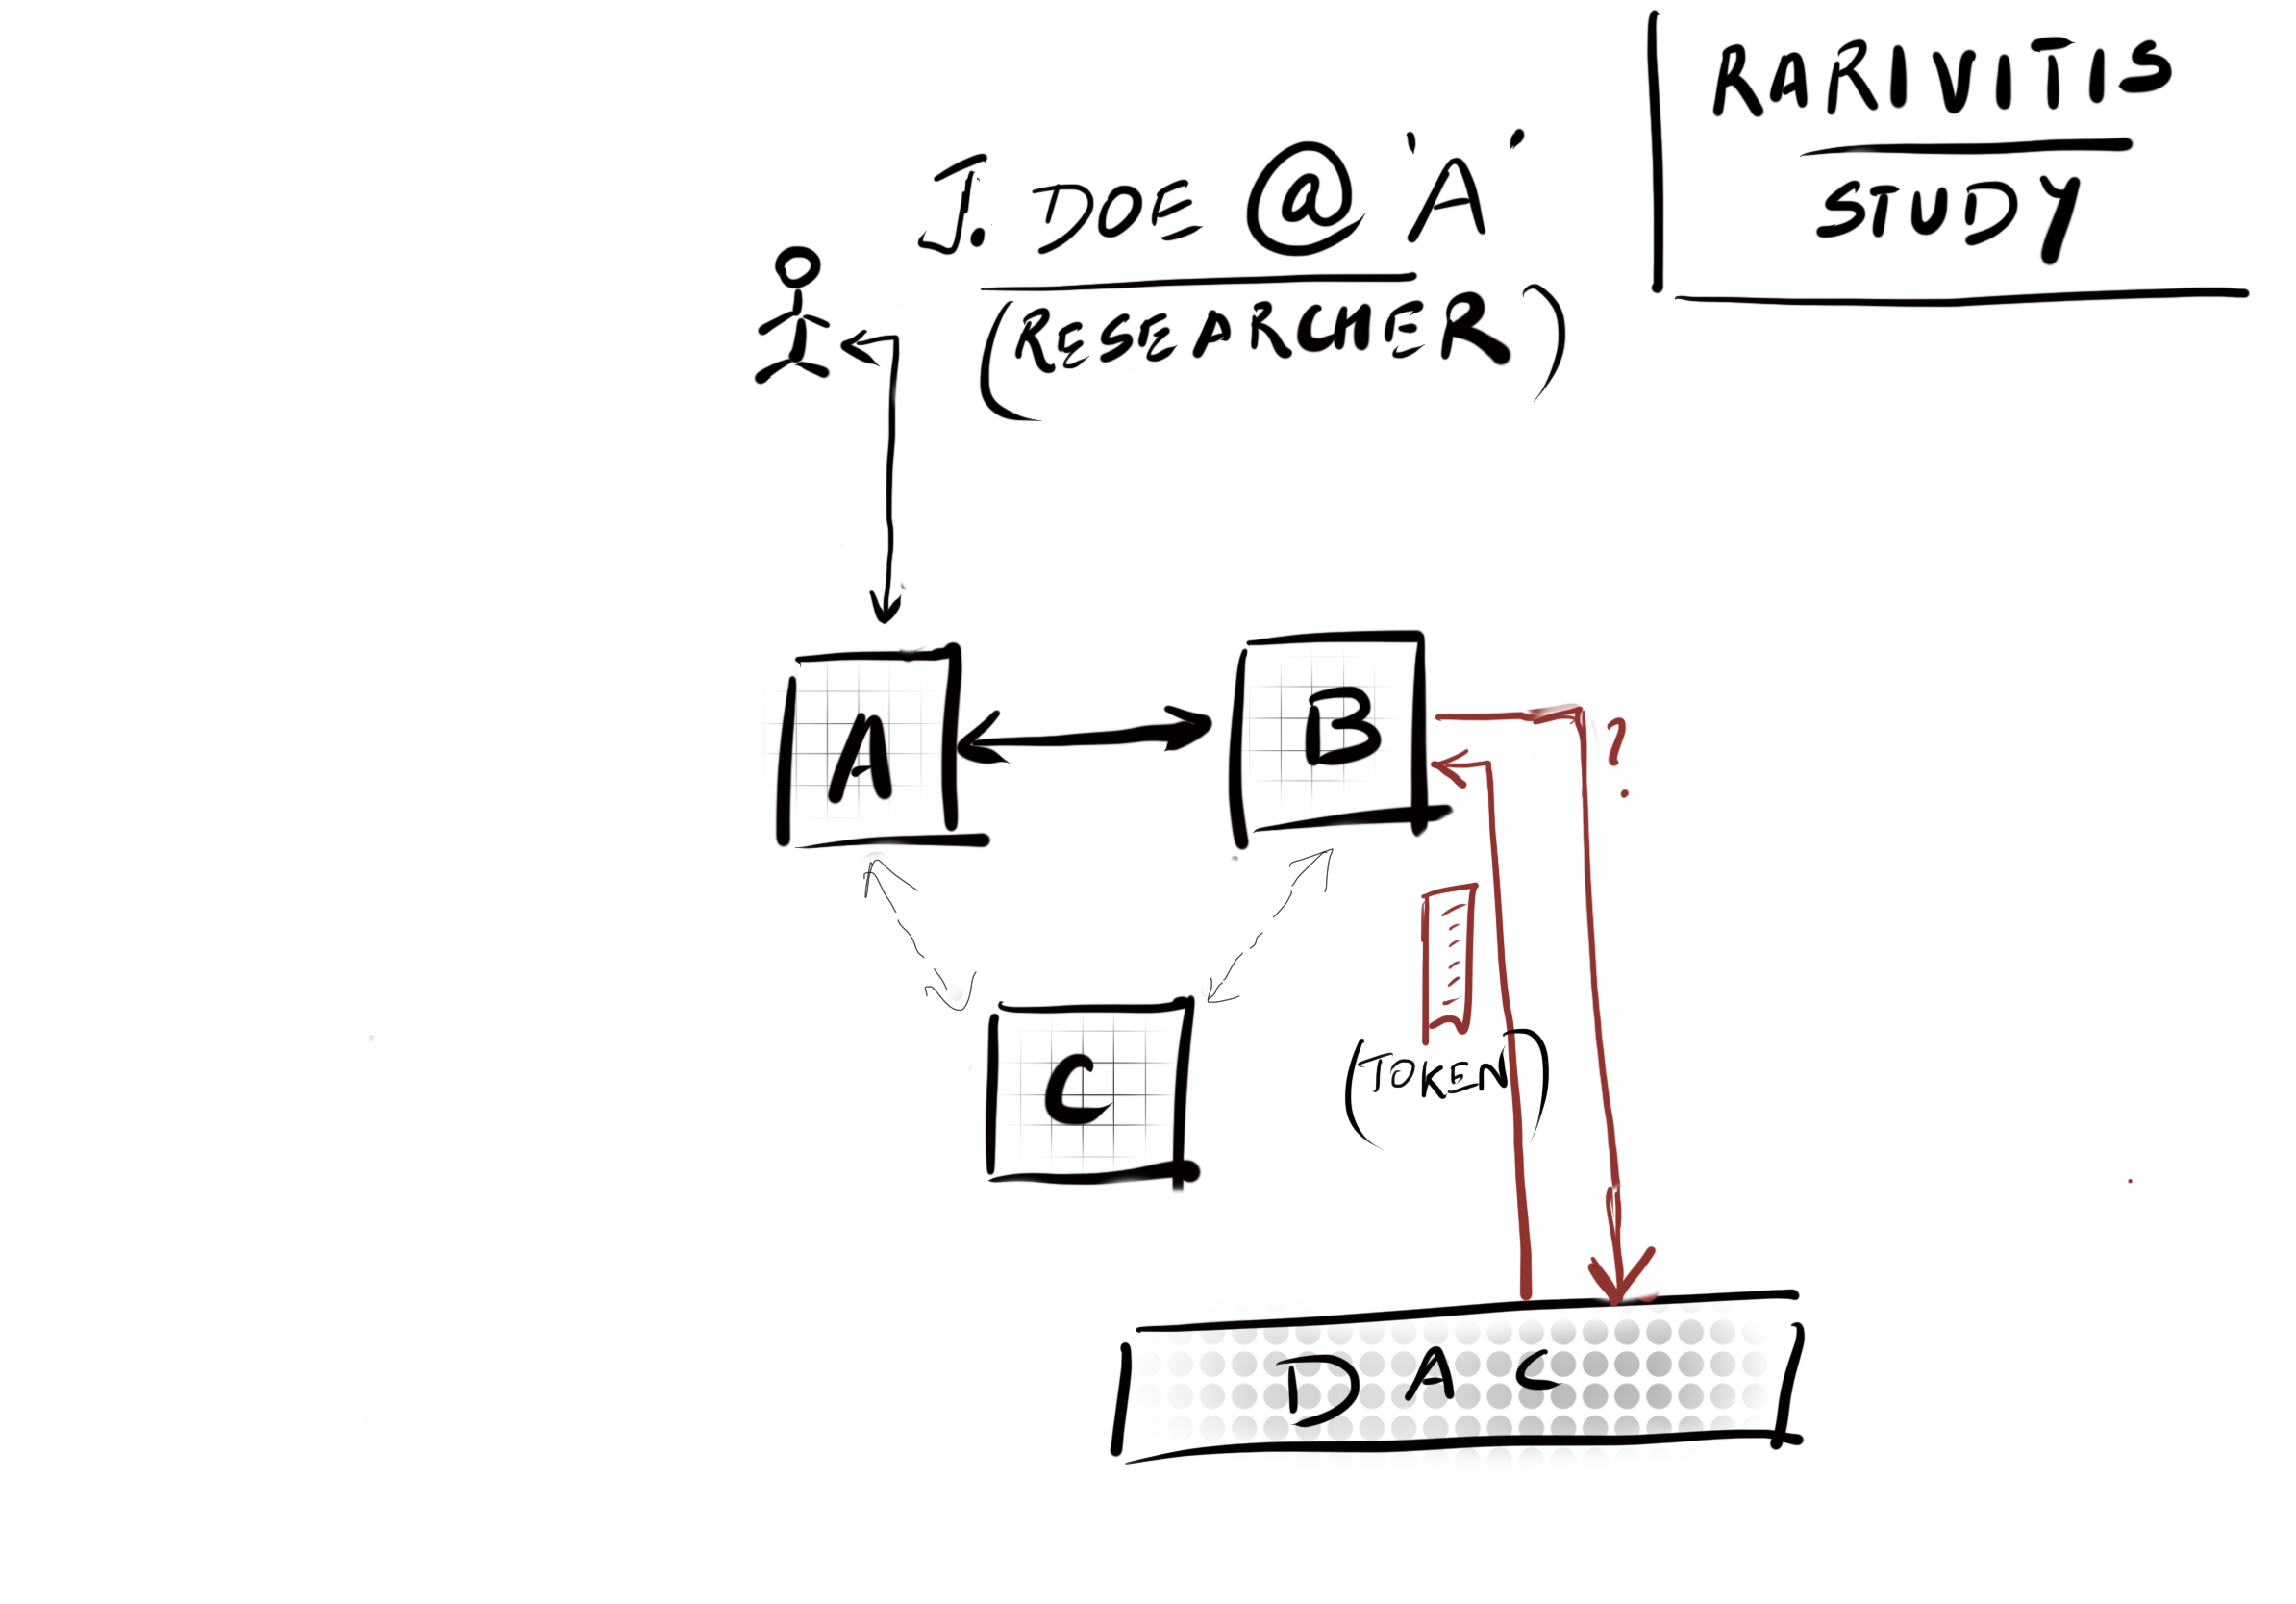 RARIVITIS
STUDY
J. DOE @ 'A'
(RESEARCHER)
A
B
?
C
(TOKEN)
DAC